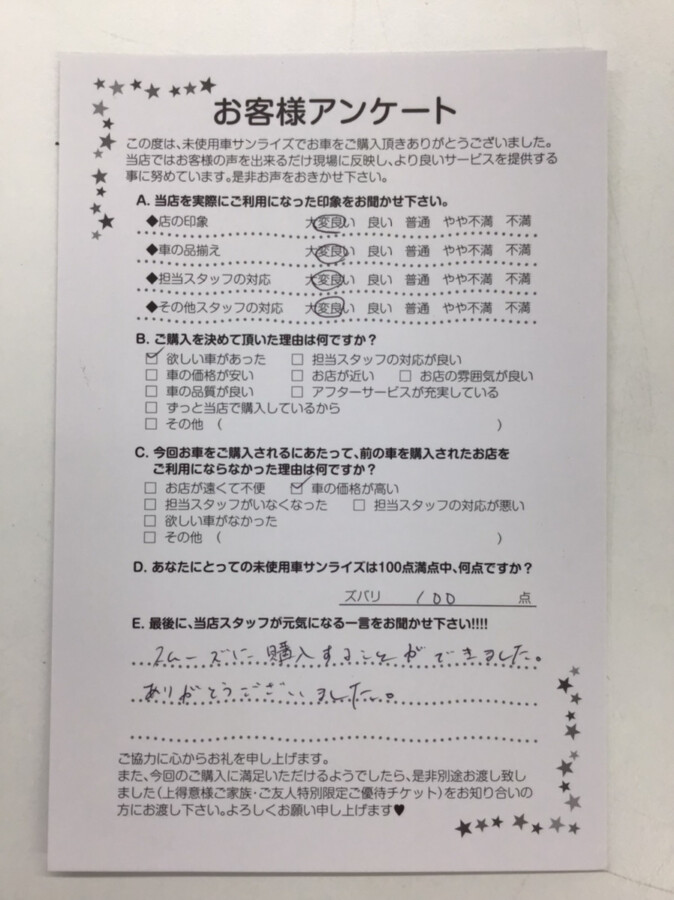 お客様アンケート
この度は、未使用車サンライズでお車をご購入頂きありがとうございました。
当店ではお客様の声を出来るだけ現場に反映し、より良いサービスを提供する
事に努めています。是非お声をおきかせ下さい。
A. 当店を実際にご利用になった印象をお聞かせ下さい。
◆店の印象 大変良い 良い 普通 やや不満 不満
◆車の品揃え 大変良い 良い 普通 やや不満 不満
◆担当スタッフの対応 大変良い 良い 普通 やや不満 不満
◆その他スタッフの対応 大変良い 良い 普通 やや不満 不満
B. ご購入を決めて頂いた理由は何ですか？
☑ 欲しい車があった □ 担当スタッフの対応が良い
□ 車の価格が安い □ お店が近い □ お店の雰囲気が良い
□ 車の品質が良い □ アフターサービスが充実している
□ ずっと当店で購入しているから
□ その他 ( )
C. 今回お車をご購入されるにあたって、前の車を購入されたお店を
ご利用にならなかった理由は何ですか？
□ お店が遠くて不便 ☑ 車の価格が高い
□ 担当スタッフがいなくなった □ 担当スタッフの対応が悪い
□ 欲しい車がなかった
□ その他 ( )
D. あなたにとっての未使用車サンライズは100点満点中、何点ですか？
ズバリ 100 点
E. 最後に、当店スタッフが元気になる一言をお聞かせ下さい!!!!
スムーズに購入することができました。
ありがとうございました。
ご協力に心からお礼を申し上げます。
また、今回のご購入に満足いただけるようでしたら、是非別途お渡し致し
ました(上得意様ご家族・ご友人特別限定ご優待チケット)をお知り合いの
方にお渡し下さい。よろしくお願い申し上げます♥